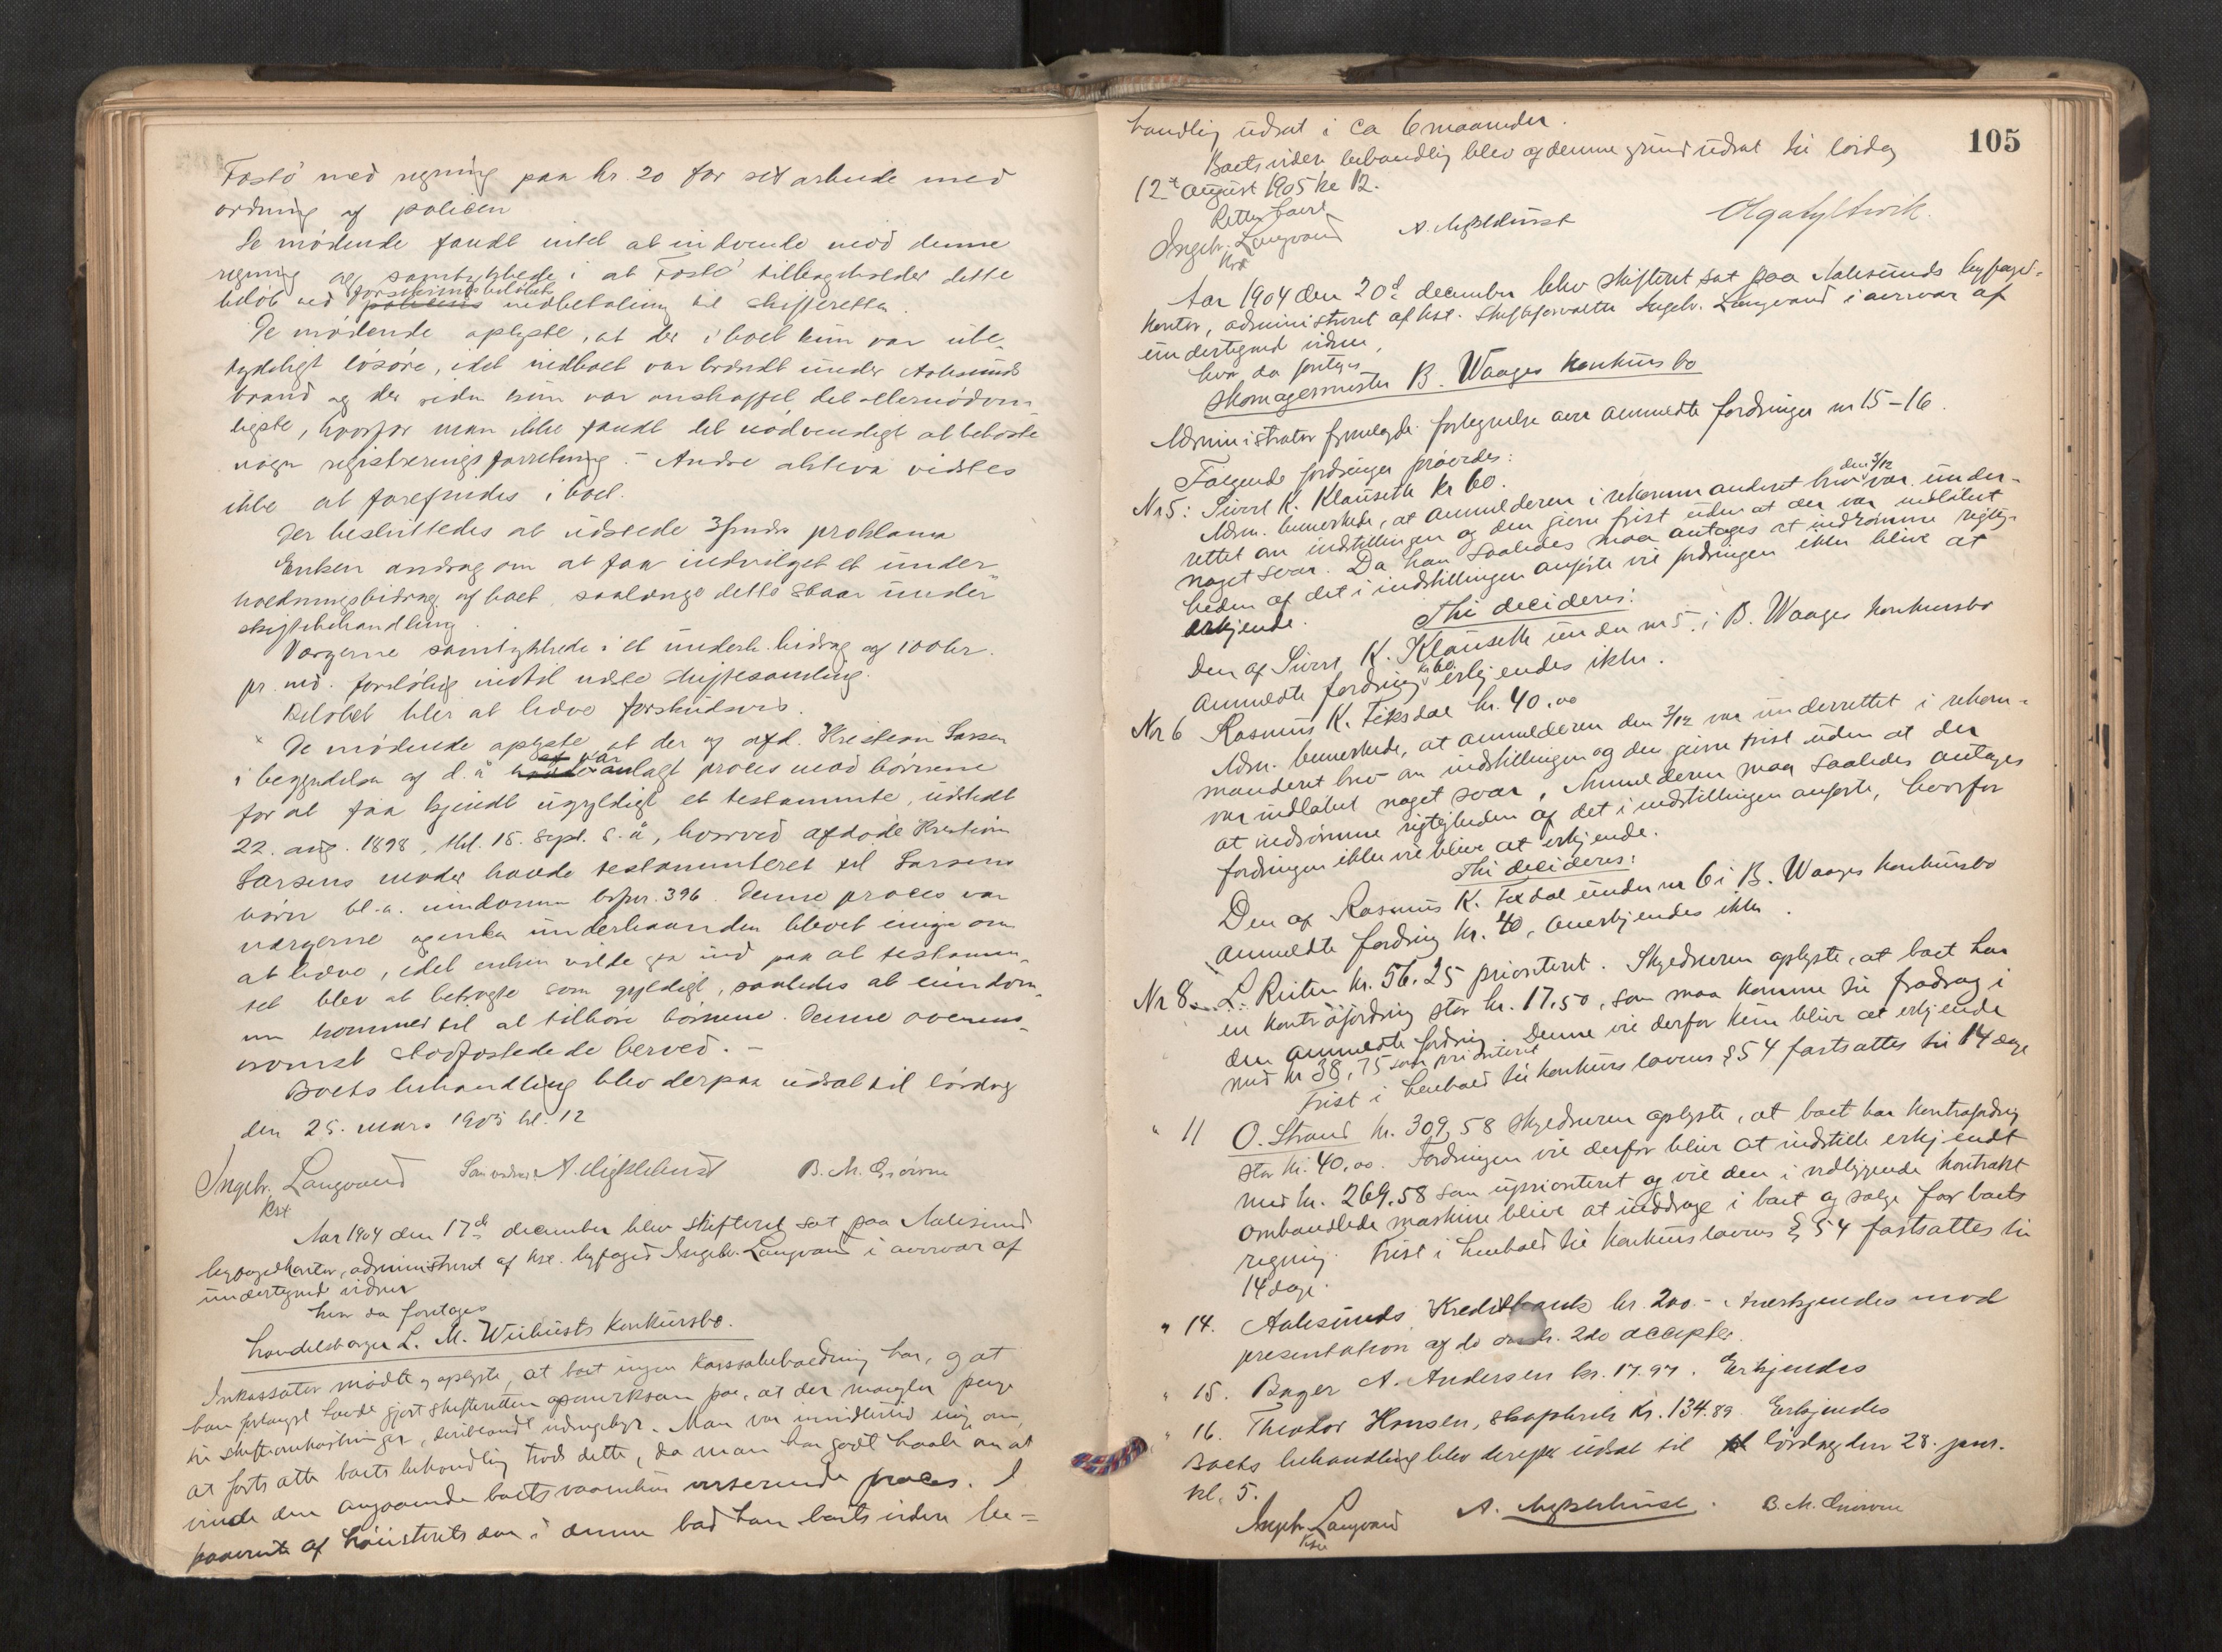 Fostö med regning paa kr. 20 for sit arbeide med
ordning af policen
De mødende fandt intet at indvende mod denne
regning og samtykkede i at Fostö tilbageholder dette
beløb ved forsikringsbeløbets indbetaling til skifteretten.
De mødende oplyste, at der i boet kun var ube-
tydeligt løsøre, idet indboet var brændt under Aalesunds
brand og der siden kun var anskaffet det allernødven-
digste, hvorfor man ikke fandt det nødvendigt at bekoste
nogen registreringsforretning. - Andre aktiva vidstes
ikke at forefindes i boet.
Der besluttedes at udstede 3 mds proklama
Enken androg om at faa indvilget et under-
holdningsbidrag af boet, saalænge dette staar under
skiftebehandling.
Værgerne samtykkede i et underh. bidrag af 100 kr.
pr. md. foreløbig indtil næste skiftesamling.
Beløbet bliver at hæve forskudsvis.
De mødende oplyste at der og afd. Kristian Larsen
i begyndelsen af d. å var anlagt proces mod børnene
for at faa kjendt ugyldigt et testamente, udstedt
22. aug. 1898, thl. 15. sept. s. å, hvorved afdøde Kristian
Larsens moder havde testamenteret til Larsens
børn bl. a. eiendommen 396. Denne proces var
værgerne og enken underhaanden blevet enige om
at hæve, idet enken vilde gaa ind paa at testamen-
tet blev at betragte som gyldigt, saaledes at eiendom-
men kommer til at tilhøre børnene. Denne overens-
komst stadfæstedede herved. -
Boets behandling blev derpaa udsat til lørdag
den 25. mars 1905 kl. 12
Ingebr. Langvand A. Myklebust B. M.
Kst
Aar 1904 den 17de december blev skifteret sat paa Aalesund
byfogedkontor, administreret af kst. byfoged Ingebr. Langvand i overvær af
undertegnede vidner
hvor da foretages
Handelsborger L. M. Wiibusts konkursbo.
Inkassator mødte og oplyste, at boet ingen kassabeholdning har, og at
han forlængst havde gjort skifteretten opmerksom paa, at der mangler penge
til skifteomkostninger, deriblandt vidnegebyr. Man var imidlertid enig om
at fortsætte boets behandling trods dette, da man har godt haab om at
vinde den angaaende boets vaarenhus verserende proces. I
paavente af høiesterets dom i denne bad han boets videre be-
105
handling udsat i ca 6 maaneder.
Boets videre behandling blev af denne grund udsat til lørdag
12te august 1905 kl 12.
Retten hævet
Ingebr. Langvand A. Myklebust Olga
Kst
Aar 1904 den 20de december blev skifteret sat paa Aalesunds byfoged-
kontor, administreret af kst. skifteforvalter Ingebr. Langvand i overvær af
undertegnede vidner,
hvor da foretages
Skomagermester B. Waages konkursbo
Administrator fremlagde fortegnelse over anmeldte fordringer nr 15-16.
Følgende fordringer prøvedes:
Nr 5: Sivert K. Klauseth kr 60.
Adm. bemerkede, at anmelderen i rekommanderet brev den 3/12 var under-
rettet om indstillingen og den givne frist uden at der var indløbet
noget svar. Da han saaledes maa antages at indrømme rigtig-
heden af det i indstillingen anførte vil fordringen ikke blive at
erkjende.
Thi decideres:
Den af Sivert K. Klauseth under nr 5 i B. Waages konkursbo
anmeldte fordring kr 60 erkjendes ikke.
Nr 6 Rasmus K. Fiksdal kr. 40,00
Adm. bemerkede, at anmelderen den 3/12 var underrettet i rekom-
manderet brev om indstillingen og den givne frist uden at der
var indløbet noget svar, Anmelderen maa saaledes antages
at indrømme rigtigheden af det i indstillingen anførte, hvorfor
fordringen ikke vil blive at erkjende.
Thi decideres:
Den af Rasmus K. Fixdal under nr 6 i B. Waages konkursbo
anmeldte fordring kr. 40, anerkjendes ikke.
Nr 8. L. Reiten kr. 56.25 prioriteret. Skyldneren oplyste, at boet har
en kontrafordring stor kr. 17.50, som maa komme til fradrag i
den anmeldte fordring. Denne vil derfor kun blive at erkjende
med kr 38,75 som prioriteret
Frist i henhold til konkurslovens § 54 fastsattes til 14 dage
" 11 O. Strand kr. 309,58 Skyldneren oplyste, at boet har kontrafordring
stor kr. 40,00. Fordringen vil derfor blive at indstille erkjendt
med kr. 269.58 som uprioriteret og vil den i vedliggende kontrakt
omhandlede maskine blive at inddrage i boet og sælge for boets
regning. Frist i henhold til konkurslovens § 54 fastsattes til
14 dage.
" 14. Aalesunds Kreditbank kr. 200.- Anerkjendes mod
presentation af de 2de accepter.
" 15. Bager A. Andersen kr. 17.97. Erkjendes
" 16. Theodor Hansen, skofabrik kr. 134.89. Erkjendes
Boets behandling blev derpaa udsat til lørdag den 28. janr.
kl. 5.
Ingebr. Langvand A. Myklebust. B. M.
Kst